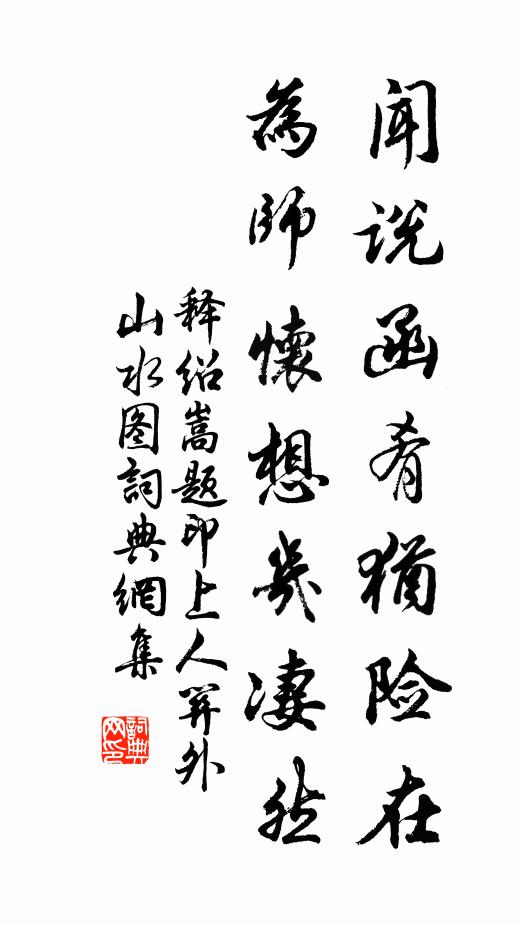 闻说函肴犹险在
為師懷想幾凄然
释绍嵩题印上人笄外
山水图詞典網集
詞典
网印